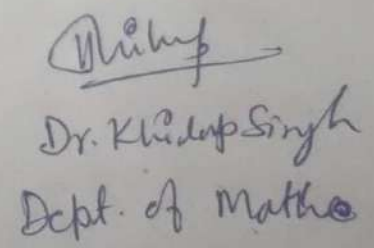 Dr. Khilap Singh
Dept. of Maths